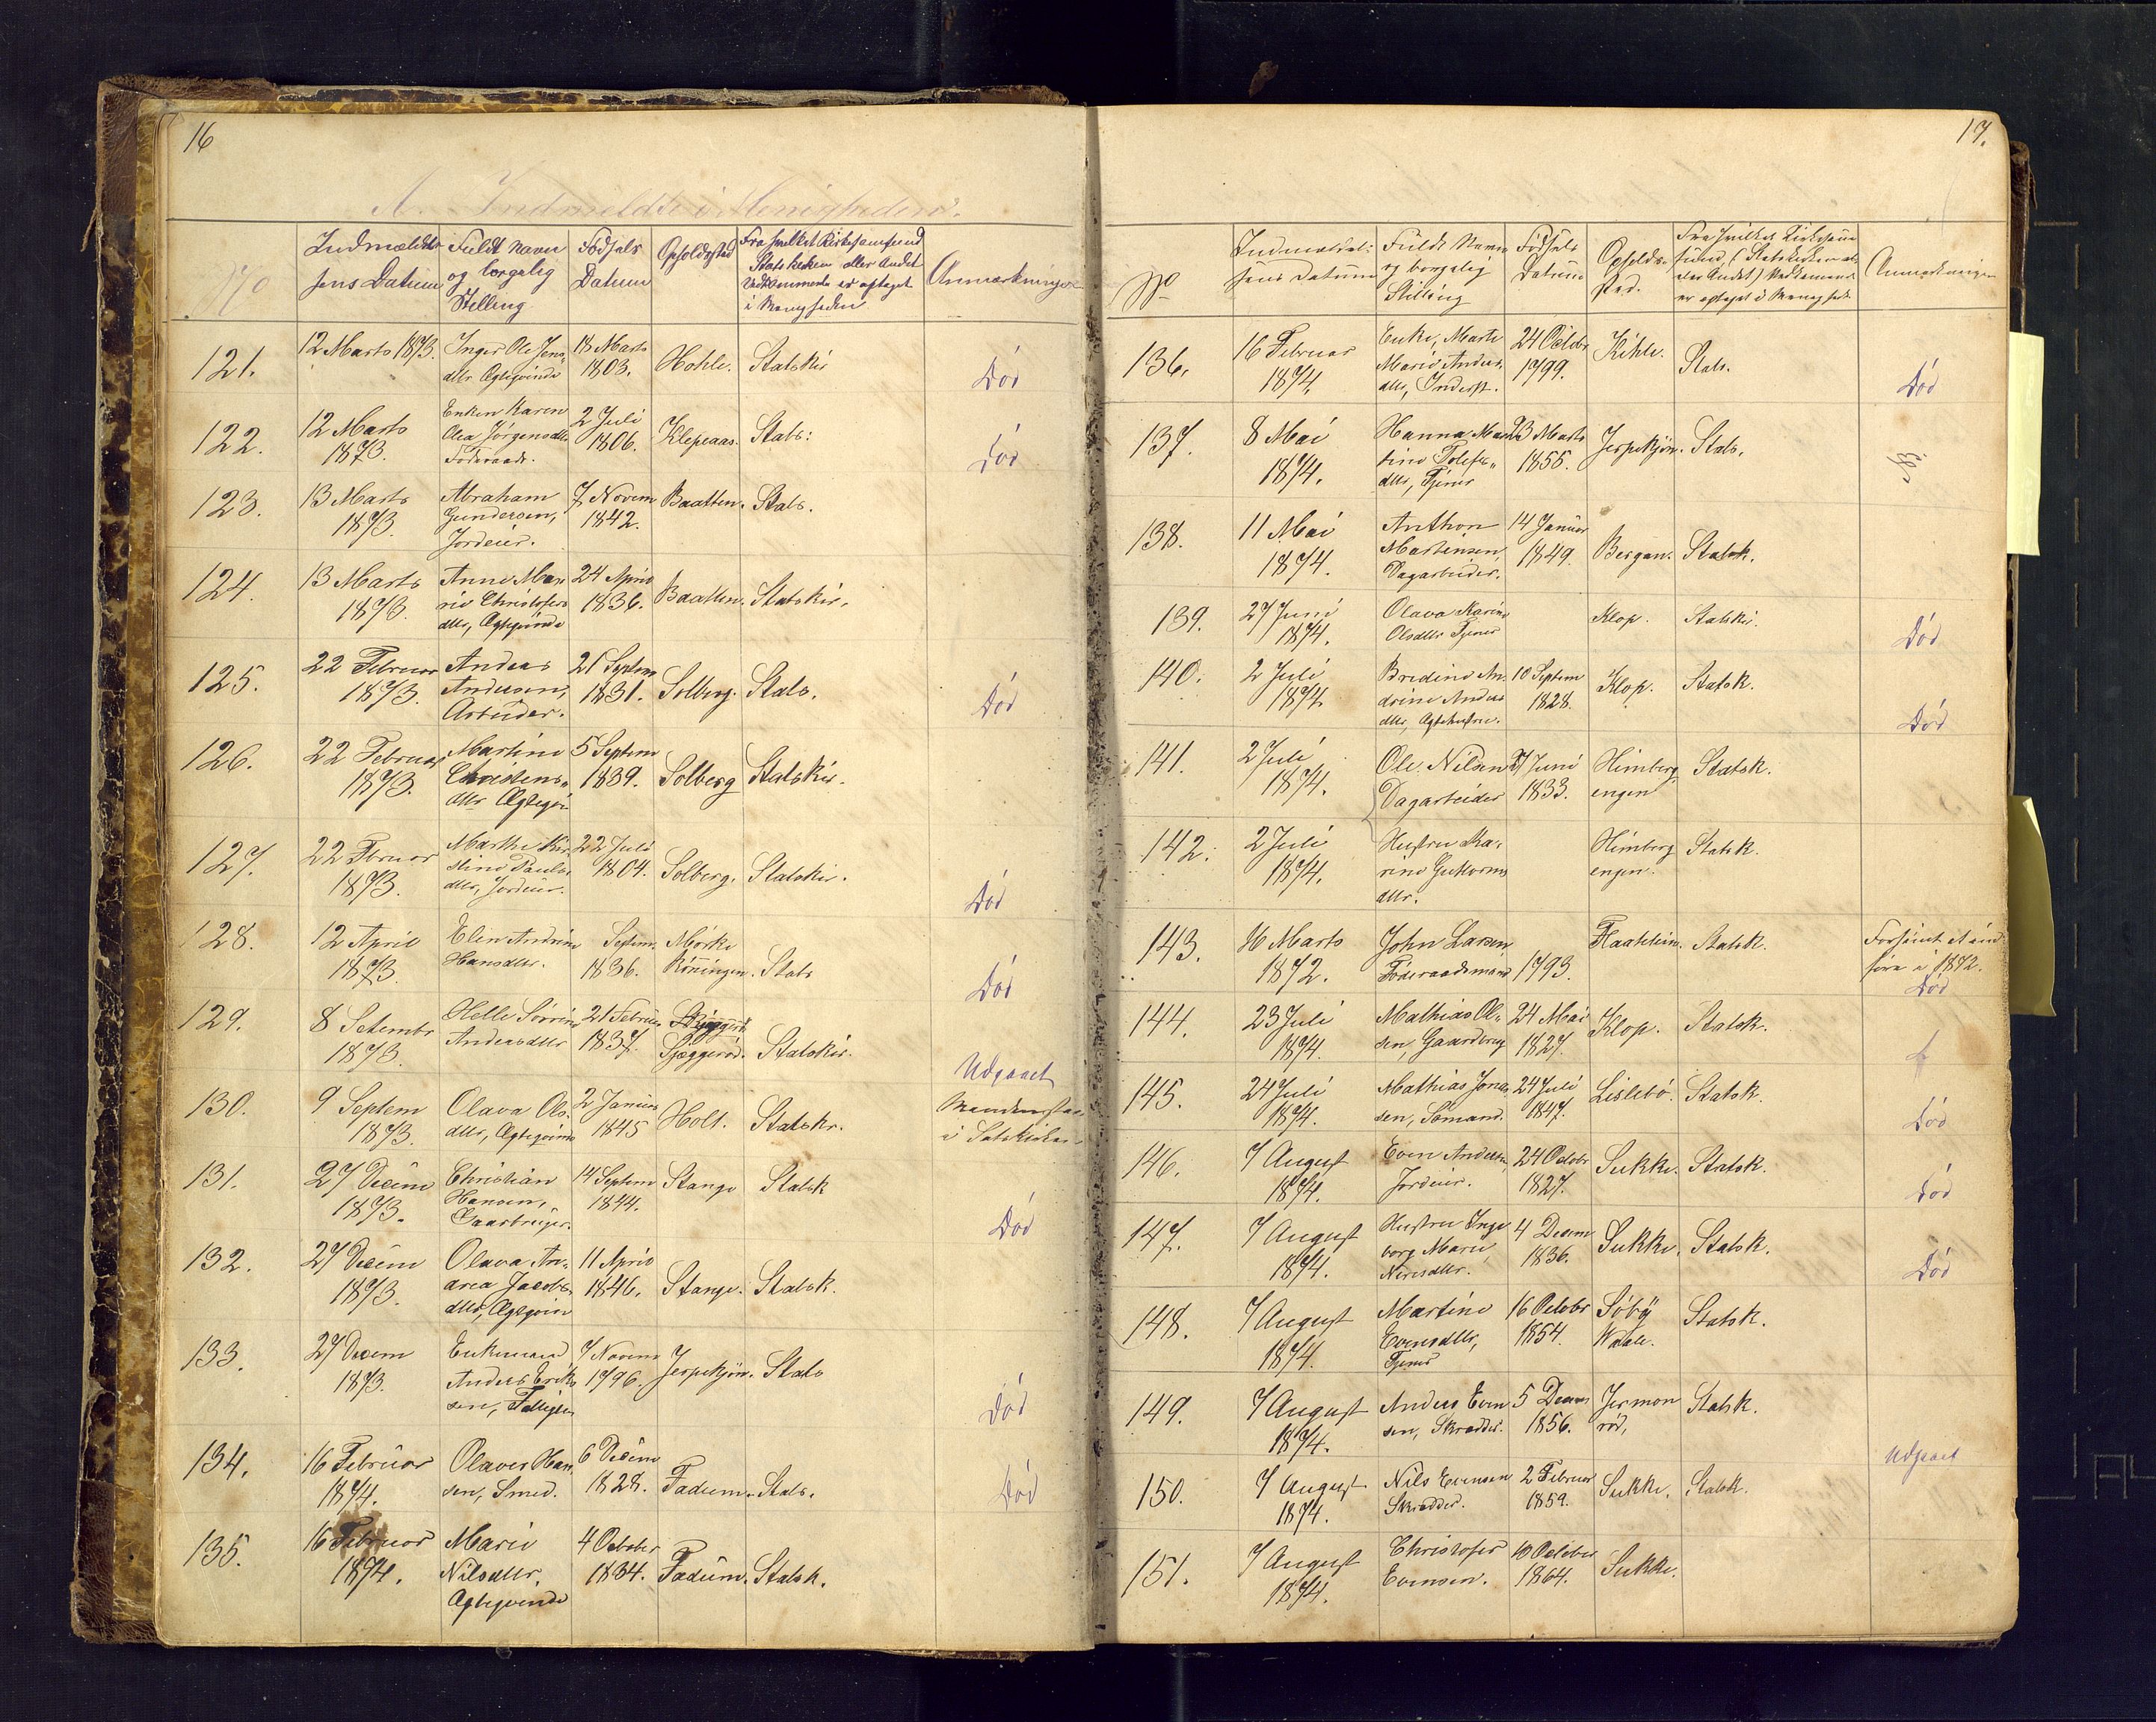 16
A. Indmeldte i Menigheden.
No
Indmældel-
sens Datum
Fuldt Navn
og borgelig
Stelling
Fødsels
Datum
Opholdssted
Fra hvilket Kirkesamfund
Statskirken eller Andet
Vedkommende er optaget
i Menigheden
Anmærkninger
121.
12 Marts 1873.
Inger Ole Jens
dtr Ægteqvinde
18 Marts
1803.
Hohle.
Statskir
Død
122.
12 Marts
1873.
Enken Karen
Olea Jørgensdtr
Føderaads.
2 Juli
1806.
Klepaas.
Stats:
Død
123.
13 Marts
1873.
Abraham
Gundersen,
Jordeier.
7 Novem
1842.
Baatten.
Stats.
124.
13 Marts
1873.
Anne Ma
rie Christofers
dtr, Ægteqvinde
24 April
1836.
Baatten.
Statskir.
125.
22 Februar
1873.
Andreas
Andersen,
Arbeider.
21 Septem
1831.
Solberg.
Stats.
Død
126.
22 Februar
1873.
Martine
Christens
dtr Ægteqvi
5 Septem
1839.
Solberg
Statskir.
127.
22 Februar
1873.
Marthe Kir
stine Pauls
dtr, Jordeier.
22 Juli
1804.
Solberg.
Statskir.
Død
128.
12 April
1873.
Elen Andrine
Hansdtr.
Septem.
1836.
Mørke
Rønningen.
Stats
Død
129.
8 Setembr
1873.
Helle Sørrine
Andersdtr
21 Februar
1837.
Sjæggerød.
Statskir.
Udgaaet
130.
9 Septem
1873.
Olava Ols
dtr, Ægteqvinde
2 Januar
1845
Holt.
Statskr.
Manden staar
i Statskirken
131.
27 Decem
1873.
Christian
Hansen,
Gaarbruger.
14 Septem
1844.
Stange
Statsk
Død
132.
27 Decem
1873.
Olava An-
drea Jacobs
dtr, Ægteqvin
11 April
1846.
Stange.
Statsk.
133.
27 Decem
1873.
Enkemand
Anders Erik
sen, Fattiglem
7 Novem
1796.
Jerpekjøn.
Stats
Død
134.
16 Februar
1874.
Olaves Han
sen, Smed.
6 Decem
1828.
Fadum.
Stats.
Død
135.
16 Februar
1874.
Marie
Nilsdtr,
Ægteqvinde
4 October
1834.
Fadum.
Statsk.
17.
No
Indmældel-
sens Datum
Fuldt Navn
og borgelig
Stilling
Fødsels
Datum
Opholds-
sted.
Fra hvilket Kirkesam
fund, (Statskirken el-
ler Andet) Vedkommende
er optaget i Menighed
Anmærkninger
136.
16 Februar
1874.
Enke, Marte
Marie Anders
dtr, Inderst.
24 Octobr
1799.
Kihle.
Stats.
Død
137.
8 Mai
1874.
Hanna Mar
tine Tolefs
dtr, Tjener
23 Marts
1855.
Jerpekjøn.
Stats.
138.
11 Mai
1874.
Anthon
Martinsen,
Dagarbeider.
14 Januar
1849.
Bergan.
Statsk.
139.
27 Juni
1874.
Olava Karine
Olsdtr Tjener
Klop.
Statskir.
Død
140.
2 Juli
1874.
Bredine An
drine Anders
dtr, Ægtehustru.
10 Septem
1828.
Klop.
Statsk.
Død
141.
2 Juli
1874.
Ole Nilsen
Dagarbeider
27 Juni
1833.
Himberg
engen
Statsk.
142.
2 Juli
1874.
Hustru Ka-
rine Guttorms
dtr.
Himberg
engen.
Statsk.
143.
16 Marts
1872.
John Larsen
Føderaadsmand
1793.
Flaatelein.
Statsk.
Forsømt at ind
føre i 1872.
Død
144.
23 Juli
1874.
Mathias Ol-
sen, Gaardbrug
24 Mai
1827.
Klop.
Statsk.
145.
24 Juli
1874.
Mathias Jona
sen, Sømand.
24 Juli
1847.
Lislebø.
Statsk.
Død
146.
7 August
1874.
Even Andersen
Jordeier.
24 Octobr
1827.
Sukke.
Statsk.
Død
147.
7 August
1874.
Hustru Inge
borg Marie
Nirisdtr.
4 Decem
1836.
Sukke.
Statsk.
Død
148.
7 August
1874.
Martine
Evensdtr,
Tjener
16 Octobr
1854.
Søby
Waale.
Statsk.
149.
7 August
1874.
Anders Even
sen, Skrædder.
5 Decem
1856.
Jermon
rød,
Statsk.
150.
7 August
1874.
Nils Evensen
Skrædder.
2 Februar
1859.
Sukke.
Statsk.
Udgaaet
151.
7 August
1874.
Christofer
Evensen.
10 October
1864.
Sukke.